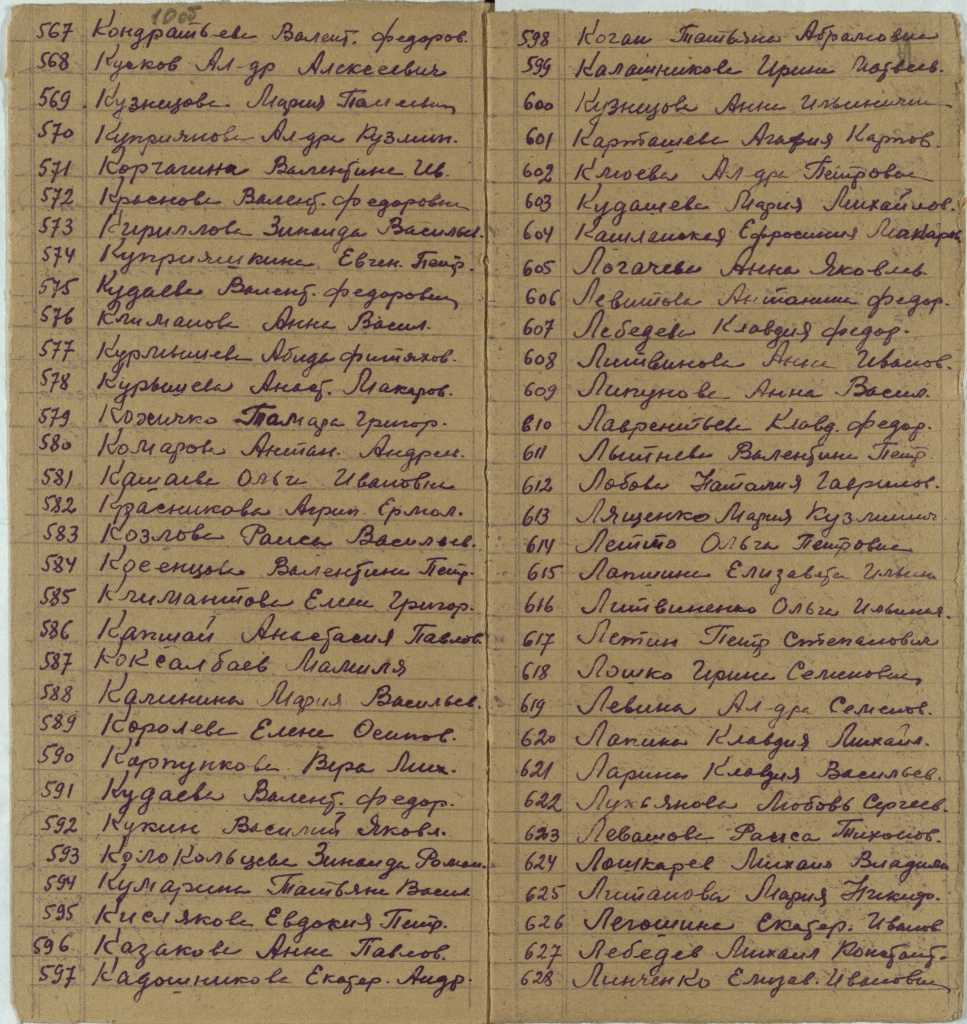 1005
567 Кондратьева Валент. Федоров.
568 Кусков Ал-др Алексеевич
569 Кузнецова Мария
570 Куприянова Ал-дра Кузмин.
571 Корчагина Валентина Ив.
572 Краснова Валент. Федоровна
573 Кириллова Зинаида Васильев.
574 Куприяшкина Евген. Петр.
575 Кудаева Валент. Федоровна
576 Климанова Анна Васил.
577 Курмышева Абида Фитяхов.
578 Курышева Анаст. Макаров.
579 Кожичко Тамара Григор.
580 Комарова Антон. Андреев.
581 Катаева Ольга Ивановна
582 Красникова Агрип. Ермол.
583 Козлова Раиса Васильев.
584 Косенцова Валентина Петр.
585 Климантова Елена Григор.
586 Капшай Анастасия Павлов.
587 Коксалбаев Мамиля
588 Калинина Мария Васильев.
589 Королева Елена Осипов.
590 Карпункова Вера Мих.
591 Кудаева Валент. Федор.
592 Кукин Василий Яковл.
593 Колокольцева Зинаида Роман.
594 Кумарина Татьяна Васил.
595 Кислякова Евдокия Петр.
596 Казакова Анна Павлов.
597 Кадошникова Екатер. Андр.
598 Коган Татьяна Абрамовна
599 Калашникова Ирина Матвеев.
600 Кузнецова Анна Ильинична
601 Карташева Агафия Карпов.
602 Клюева Ал-дра Петровна
603 Кудашева Мария Михайлов.
604 Кашланская Ефросиния Макаров
605 Логачева Анна Яковлев.
606 Левитова Антанина Федор.
607 Лебедева Клавдия Федор.
608 Литвинова Анна Иванов.
609 Липунова Анна Васил.
610 Лаврентьева Клавд. Федор.
611 Лытнева Валентина Петр.
612 Лобова Наталия Гаврилов.
613 Лященко Мария Кузминич.
614 Летто Ольга Петровна
615 Лапшина Елизавета Ильин
616 Литвиненко Ольга Ильинич.
617 Летин Петр Степанович
618 Лошко Ирина Семеновна
619 Левина Ал-дра Семенов.
620 Лапина Клавдия Михайл.
621 Ларина Клавдия Васильев.
622 Лукьянова Любовь Сергеев.
623 Левашова Раиса Тихонов.
624 Лошкарев Михаил Владими
625 Литанова Мария Никиф.
626 Легошина Екатер. Иванов
627 Лебедев Михаил Констант.
628 Линченко Елизав. Ивановна